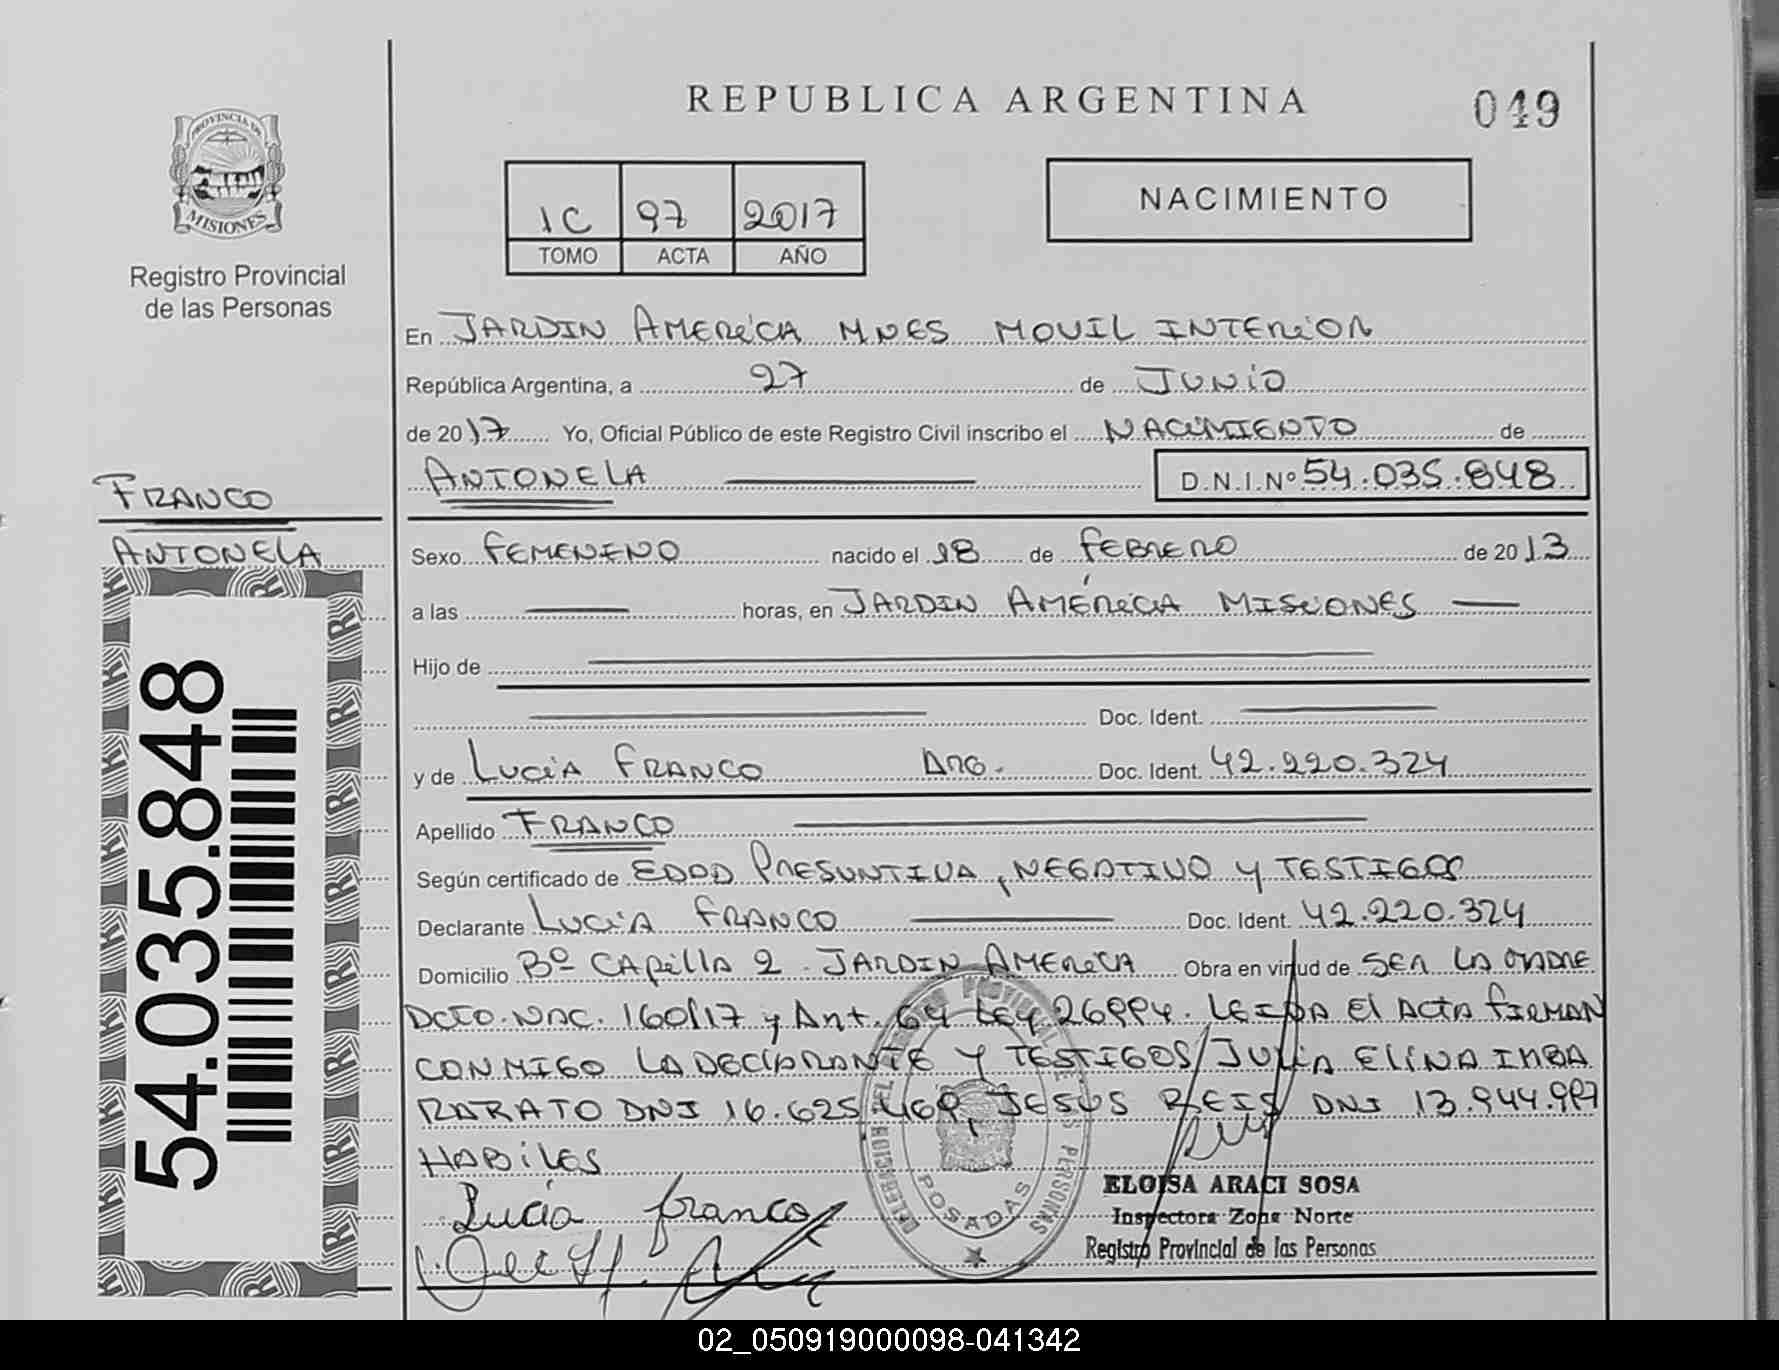 REPUBLICA ARGENTINA
049
PROVINCIA DE
MISIONES
Registro Provincial
de las Personas
1C 97 2017
TOMO ACTA AÑO
NACIMIENTO
En JARDIN AMERICA MNES MOVIL INTERIOR
República Argentina, a 27 de JUNIO
de 2017 Yo, Oficial Público de este Registro Civil inscribo el NACIMIENTO de
ANTONELA D.N.I.Nº 54.035.848
FRANCO
ANTONELA
Sexo FEMENINO nacido el 18 de FEBRERO de 2013
a las horas, en JARDIN AMÉRICA MISIONES
Hijo de
Doc. Ident.
y de LUCIA FRANCO ARG. Doc. Ident. 42.220.324
Apellido FRANCO
Según certificado de EDAD PRESUNTIVA, NEGATIVO Y TESTIGOS
Declarante LUCIA FRANCO Doc. Ident. 42.220.324
Domicilio Bº CAPILLA 2 JARDIN AMERICA Obra en virtud de SER LA MADRE
DCTO. NAC. 160/17 y Art. 64 LEY 26994. LEIDA El ACTA FIRMAN
CONMIGO LA DECLARANTE Y TESTIGOS JULIA ELINA
RARATO DNI 16.625 JESUS REIS DNI 13.944.997
HABILES
Lucía franco
54.035.848
POSADAS
ELOISA ARACI SOSA
Inspectora Zona Norte
Registro Provincial de las Personas
02_050919000098-041342